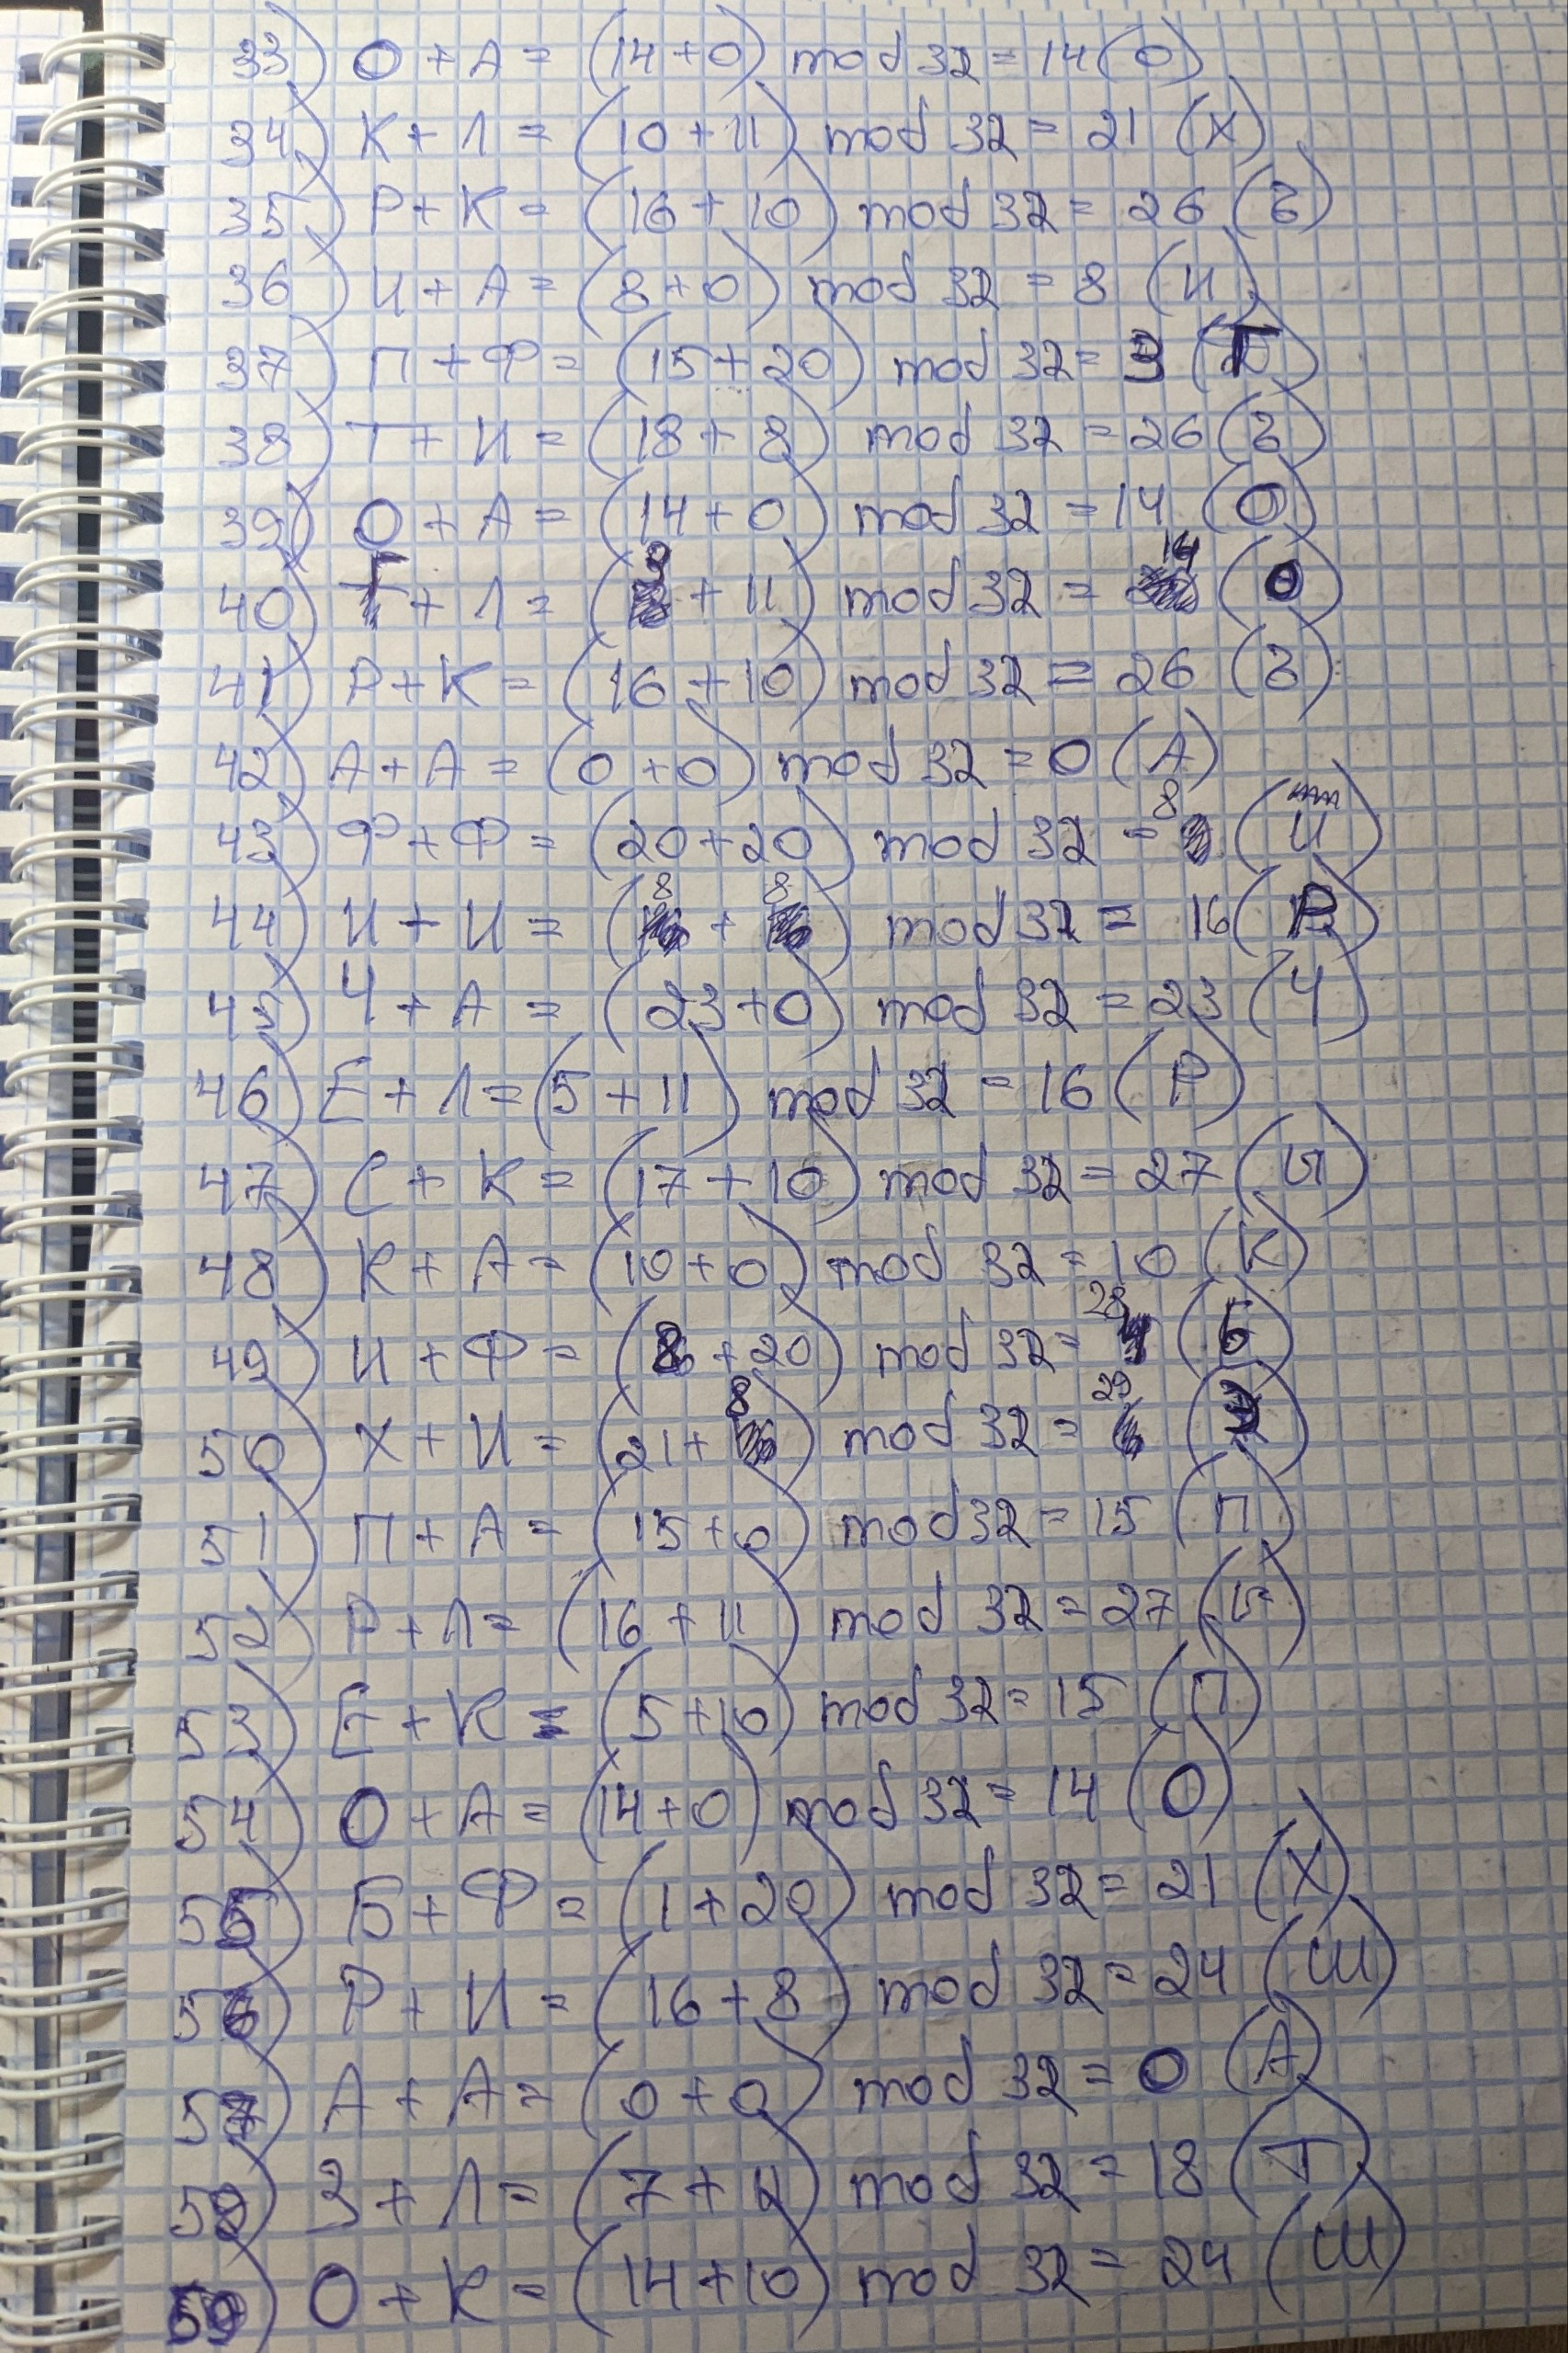 33) О + А = (14 + 0) mod 32 = 14 (О)
34) К + Л = (10 + 11) mod 32 = 21 (Х)
35) Р + К = (16 + 10) mod 32 = 26 (Ъ)
36) И + А = (8 + 0) mod 32 = 8 (И)
37) П + Ф = (15 + 20) mod 32 = 3 (Г)
38) Т + И = (18 + 8) mod 32 = 26 (Ъ)
39) О + А = (14 + 0) mod 32 = 14 (О)
40) Г + Л = (3 + 11) mod 32 = 14 (О)
41) Р + К = (16 + 10) mod 32 = 26 (Ъ)
42) А + А = (0 + 0) mod 32 = 0 (А)
43) Ф + Ф = (20 + 20) mod 32 = 8 (И)
44) И + И = (8 + 8) mod 32 = 16 (Р)
45) Ч + А = (23 + 0) mod 32 = 23 (Ч)
46) Е + Л = (5 + 11) mod 32 = 16 (Р)
47) С + К = (17 + 10) mod 32 = 27 (Ы)
48) К + А = (10 + 0) mod 32 = 10 (К)
49) И + Ф = (8 + 20) mod 32 = 28 (Ь)
50) Х + И = (21 + 8) mod 32 = 29 (Э)
51) П + А = (15 + 0) mod 32 = 15 (П)
52) Р + Л = (16 + 11) mod 32 = 27 (Ы)
53) Е + К = (5 + 10) mod 32 = 15 (П)
54) О + А = (14 + 0) mod 32 = 14 (О)
55) Б + Ф = (1 + 20) mod 32 = 21 (Х)
56) Р + И = (16 + 8) mod 32 = 24 (Ш)
57) А + А = (0 + 0) mod 32 = 0 (А)
58) З + Л = (7 + 11) mod 32 = 18 (Т)
59) О + К = (14 + 10) mod 32 = 24 (Ш)